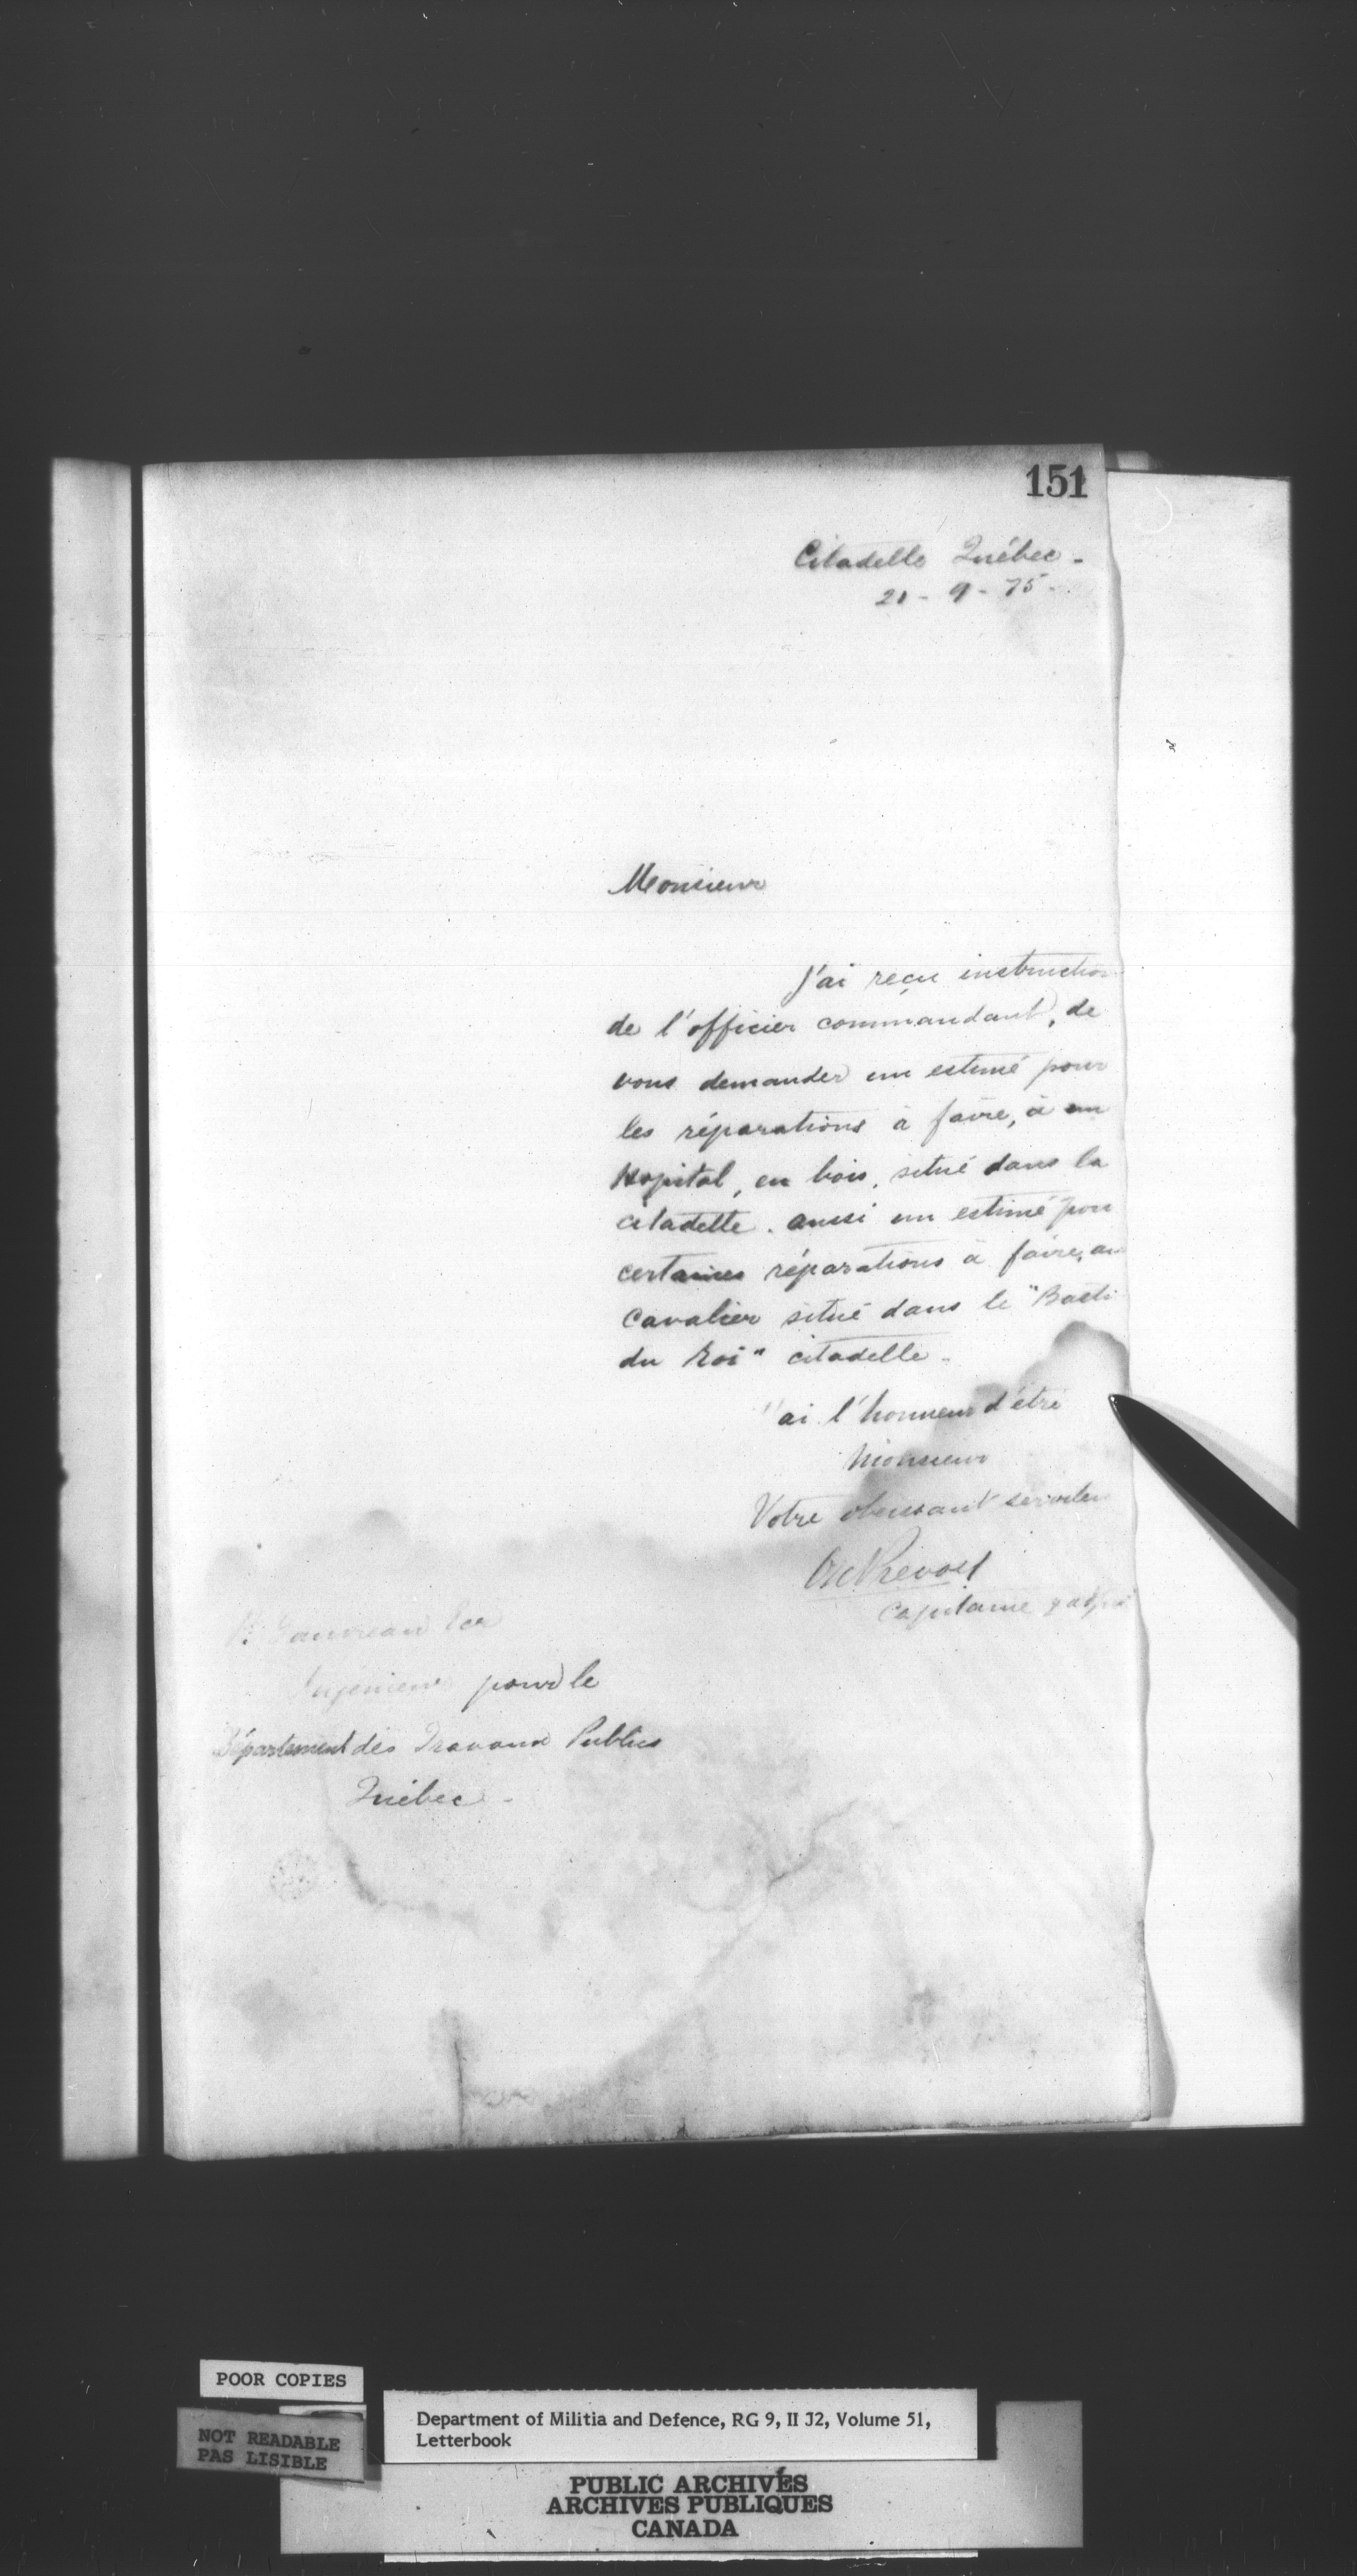 151
Citadelle Québec -
21 - 9 - 75 -
Monsieur
J'ai reçu instruction
de l'officier commandant, de
vous demander un estimé pour
les réparations à faire, à un
Hopital, en bois, situé dans la
citadelle. aussi un estimé pour
certaines réparations à faire, au
Cavalier situé dans le "Basti
du Roi" citadelle -
ai l'honneur d'être
Monsieur
Votre obeissant serviteu
Prevost
Capitaine
Gauvreau Ecr
Ingenieur pour le
Département des Travaux Publics
Québec -
POOR COPIES
NOT READABLE
PAS LISIBLE
Department of Militia and Defence, RG 9, II J2, Volume 51,
Letterbook
PUBLIC ARCHIVES
ARCHIVES PUBLIQUES
CANADA